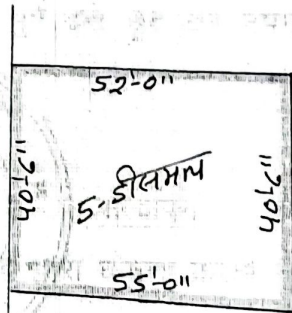 52'-0"
40'-2"
5-डीसमल
40'-2"
55'-0"